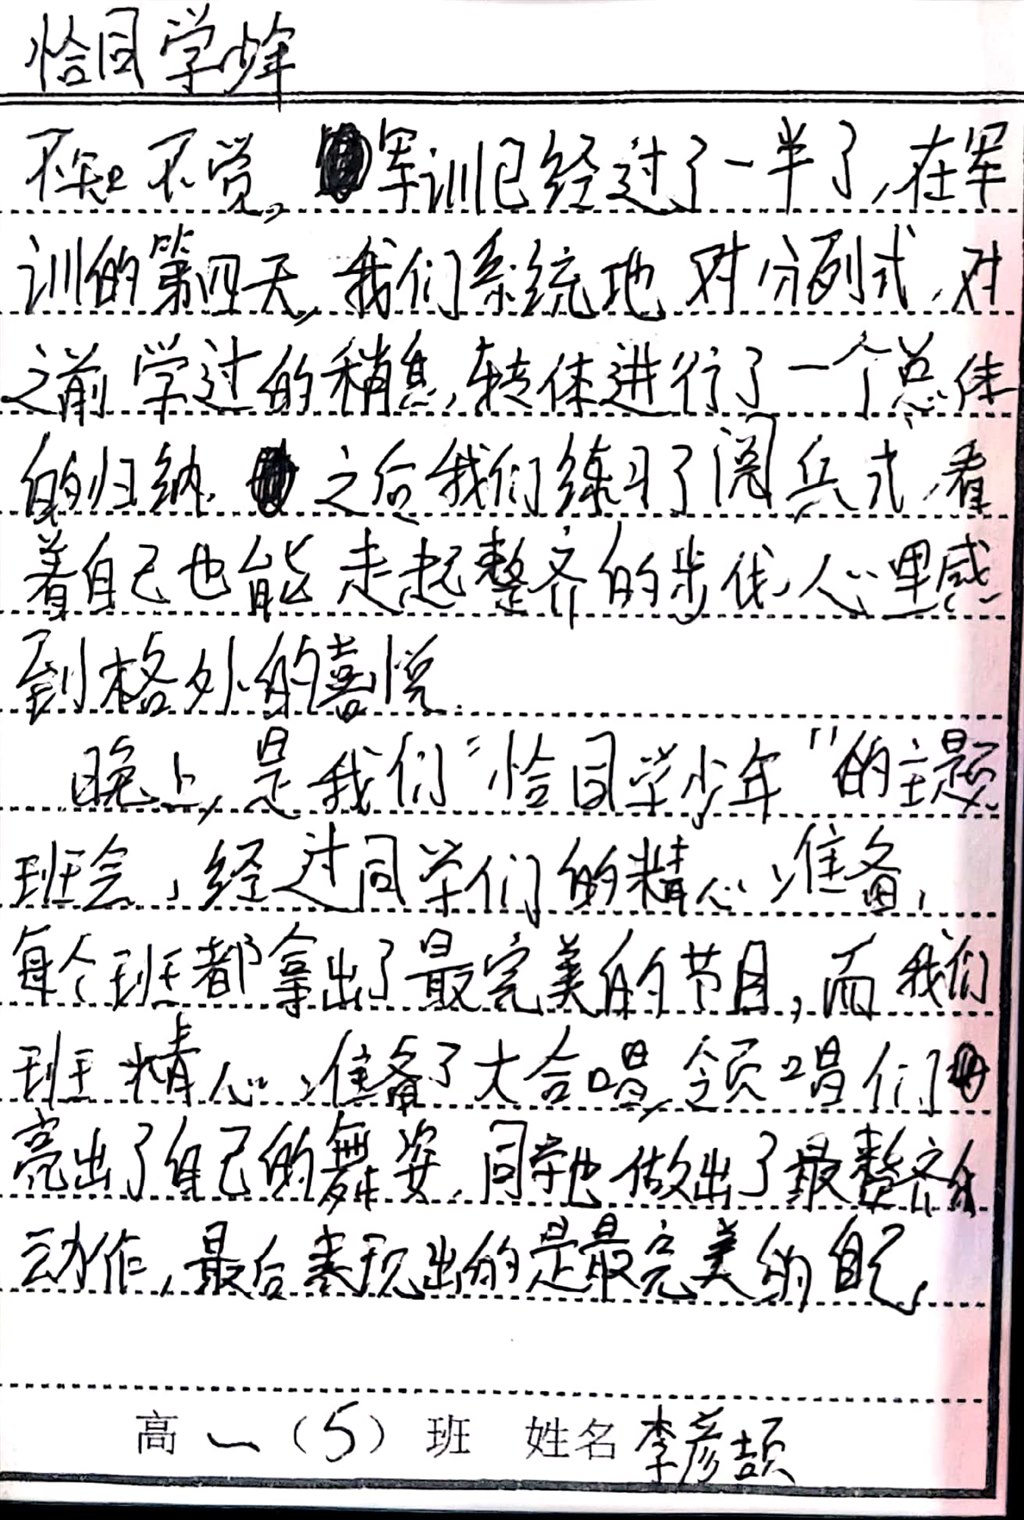 恰同学少年
不知不觉,军训已经过了一半了,在军
训的第四天,我们系统地对分列式,对
之前学过的稍息,转体进行了一个总体
的归纳,之后我们练习了阅兵式,看
着自己也能走起整齐的步伐,心里感
到格外的喜悦.
晚上,是我们“恰同学少年”的主题
班会,经过同学们的精心准备,
每个班都拿出了最完美的节目,而我们
班精心准备了大合唱,领唱们
亮出了自己的舞姿,同学也做出了最整齐的
动作,最后表现出的是最完美的自己,
高一(5)班 姓名 李彦颉